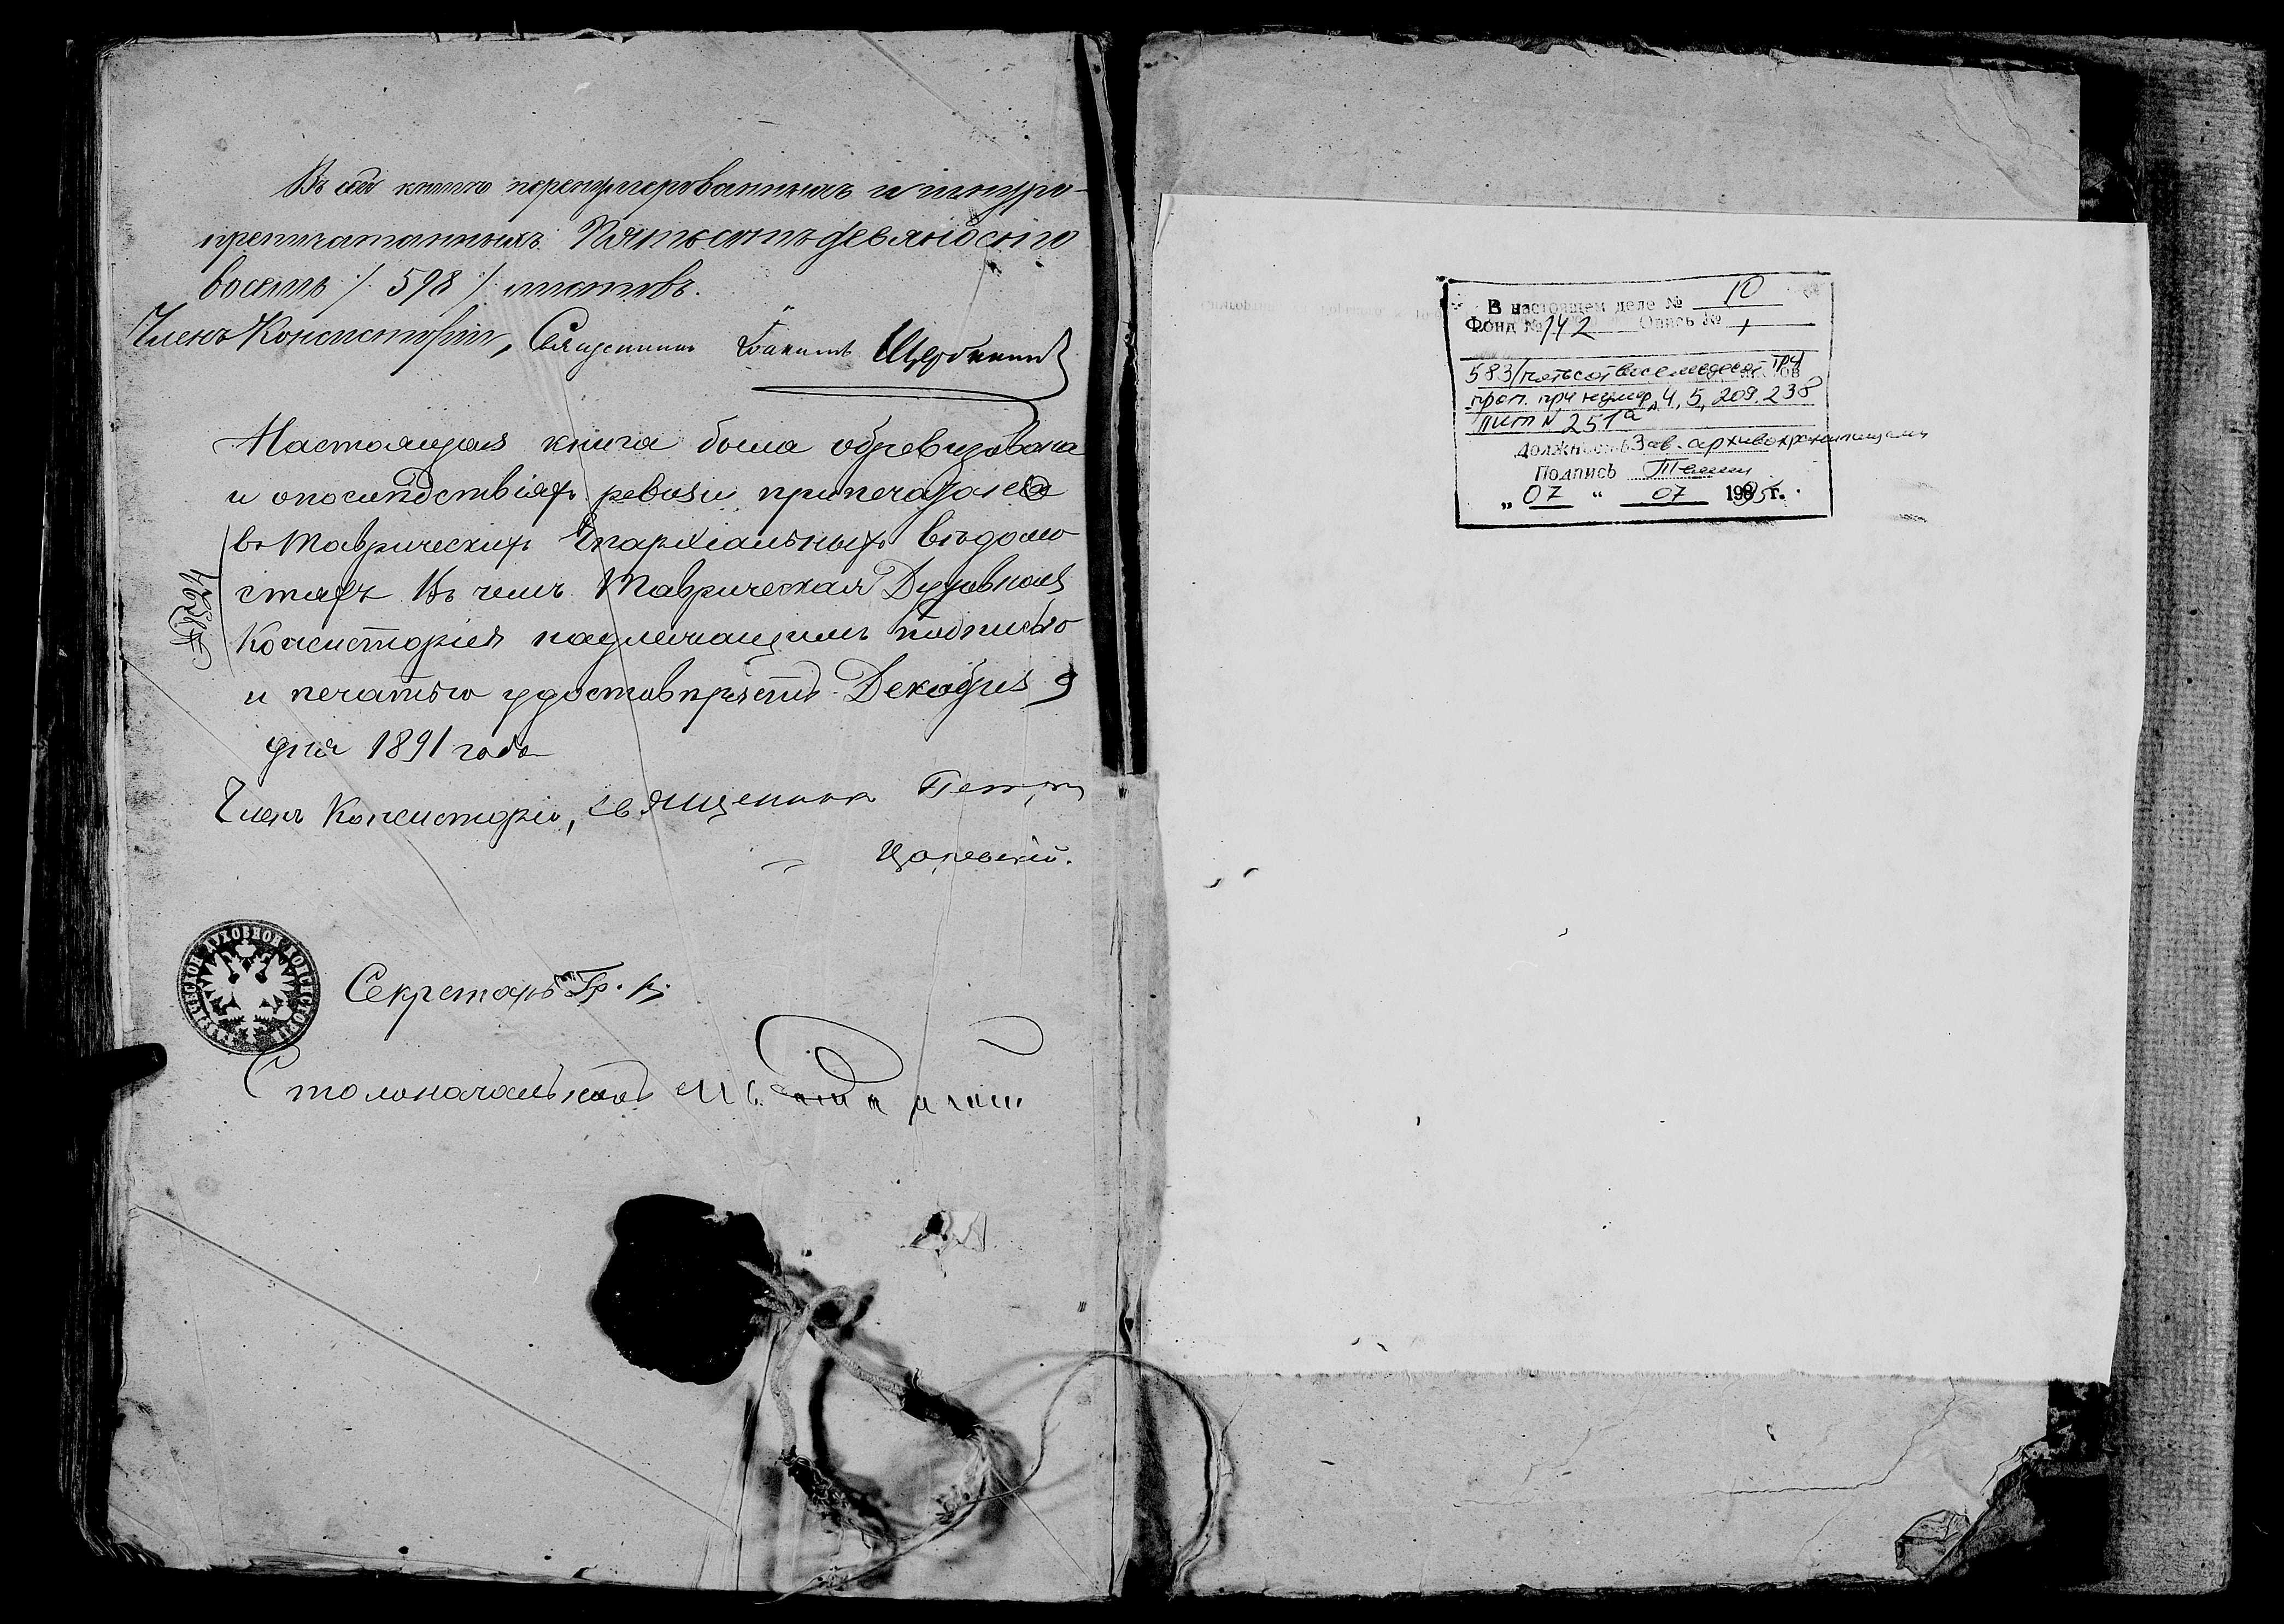 Въ сей книгѣ перенумерованныхъ и шнуро-
припечатанныхъ Пятьсотъ девяносто
восемь /. 598 /. листовъ.
Членъ Консисторіи, Священникъ Іоаннъ Щербининъ
Настоящая книга была обревизована
и о послѣдствіяхъ ревизіи припечатано
въ Таврическихъ Епархіальныхъ вѣдомо
стяхъ Въ чемъ Таврическая Духовная
Консисторія надлежащимъ подписью
и печатью удостовѣряетъ Декабря 9
дня 1891 года
Членъ Консисторіи, священникъ Петръ
Царевскій.
№ 7624
ТАВРИЧЕСКОЙ ДУХОВНОЙ КОНСИСТОРІИ
Секретарь Гр.
Столоначальникъ
В настоящем деле № 10
Фонд № 142 Опись № 1
583/пятьсот восемьдесят три
проп. при нумер. 4, 5, 209, 238
лит N 251а
Должность Зав. архивохранилищем
Подпись
„ 07 “ 07 1995г.